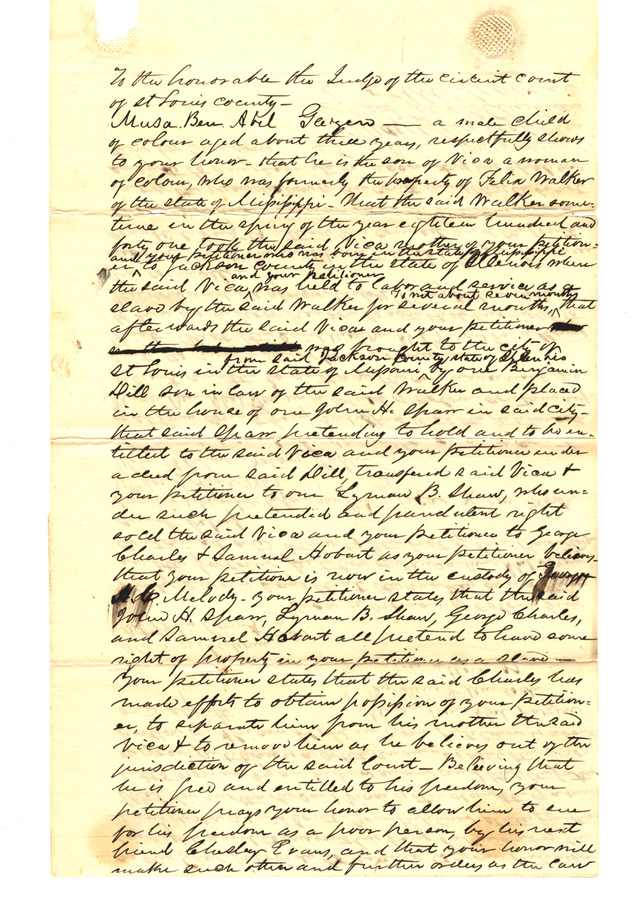 To the honorable the Judge of the circuit court
of St Louis county—
Musa Ben Abel Gazen — a male child
of colour aged about three years, respectfully shows
to your honor- that he is the son of Vica a woman
of colour, who was formerly the property of Felix Walker
of the state of Missippi- that the said Walker some-
time in the spring of the year eighteen hundred and
forty one took the said Vica mother of your petition-
and your petitioner who was born in the state of Missippi
er, to Jackson County in the state of Illinois where
and your petitioner
the said Vica was held to labor and service as a
to wit about seven months
slave by the said Walker for several months, that
afterwards the said Vica and your petitioner
was brought to the city of
from said Jackson County state of Illinois
St Louis in the state of Missouri by one Benjamin
Dill son in law of the said Walker and placed
in the house of one John H. Sparr in said city-
that said Sparr pretending to hold and to be en-
titled to the said Vica and your petitioner under
a deed from said Dill, transfered said Vica &
your petitioner to one Lyman B. Shaw, who un-
der such pretended and fraudulent right
sold the said Vica and your petitioner to George
Charles & Samuel Hobart as your petitioner believes-
that your petitioner is now in the custody of George
Melody- your petitioner states that the said
John H. Sparr, Lyman B. Shaw, George Charles,
and Samuel Hobart all pretend to have some
right of property in your petitioner as a slave—
Your petitioner states that the said Charles has
made efforts to obtain possission of your petition-
er, to separate him from his mother the said
Vica & to remove him as he believes out of the
jurisdiction of the said Court— Believing that
he is free and entitled to his freedom, your
petitioner prays your honor to allow him to sue
for his freedom as a poor person, by his next
friend Chesley Evans, and that your honor will
make such other and further orders as the law